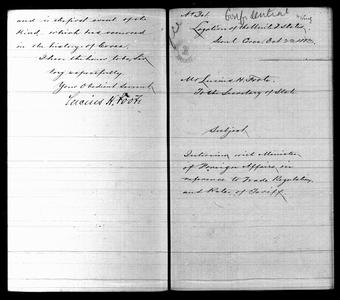 and is the first event of the
kind, which has occurred
in the history of Corea.
I have the honor to be, Sir
Very respectfully,
Your Obedient Servant
Lucius H. Foote
Confidential
Legation of the United States,
Seoul Corea, Oct
Mr Lucius H. Foote,
To the Secretary of State
Subject
Interview with Minister
of Foreign Affairs, in
reference to Trade Regulations
and Rates of Tariff.